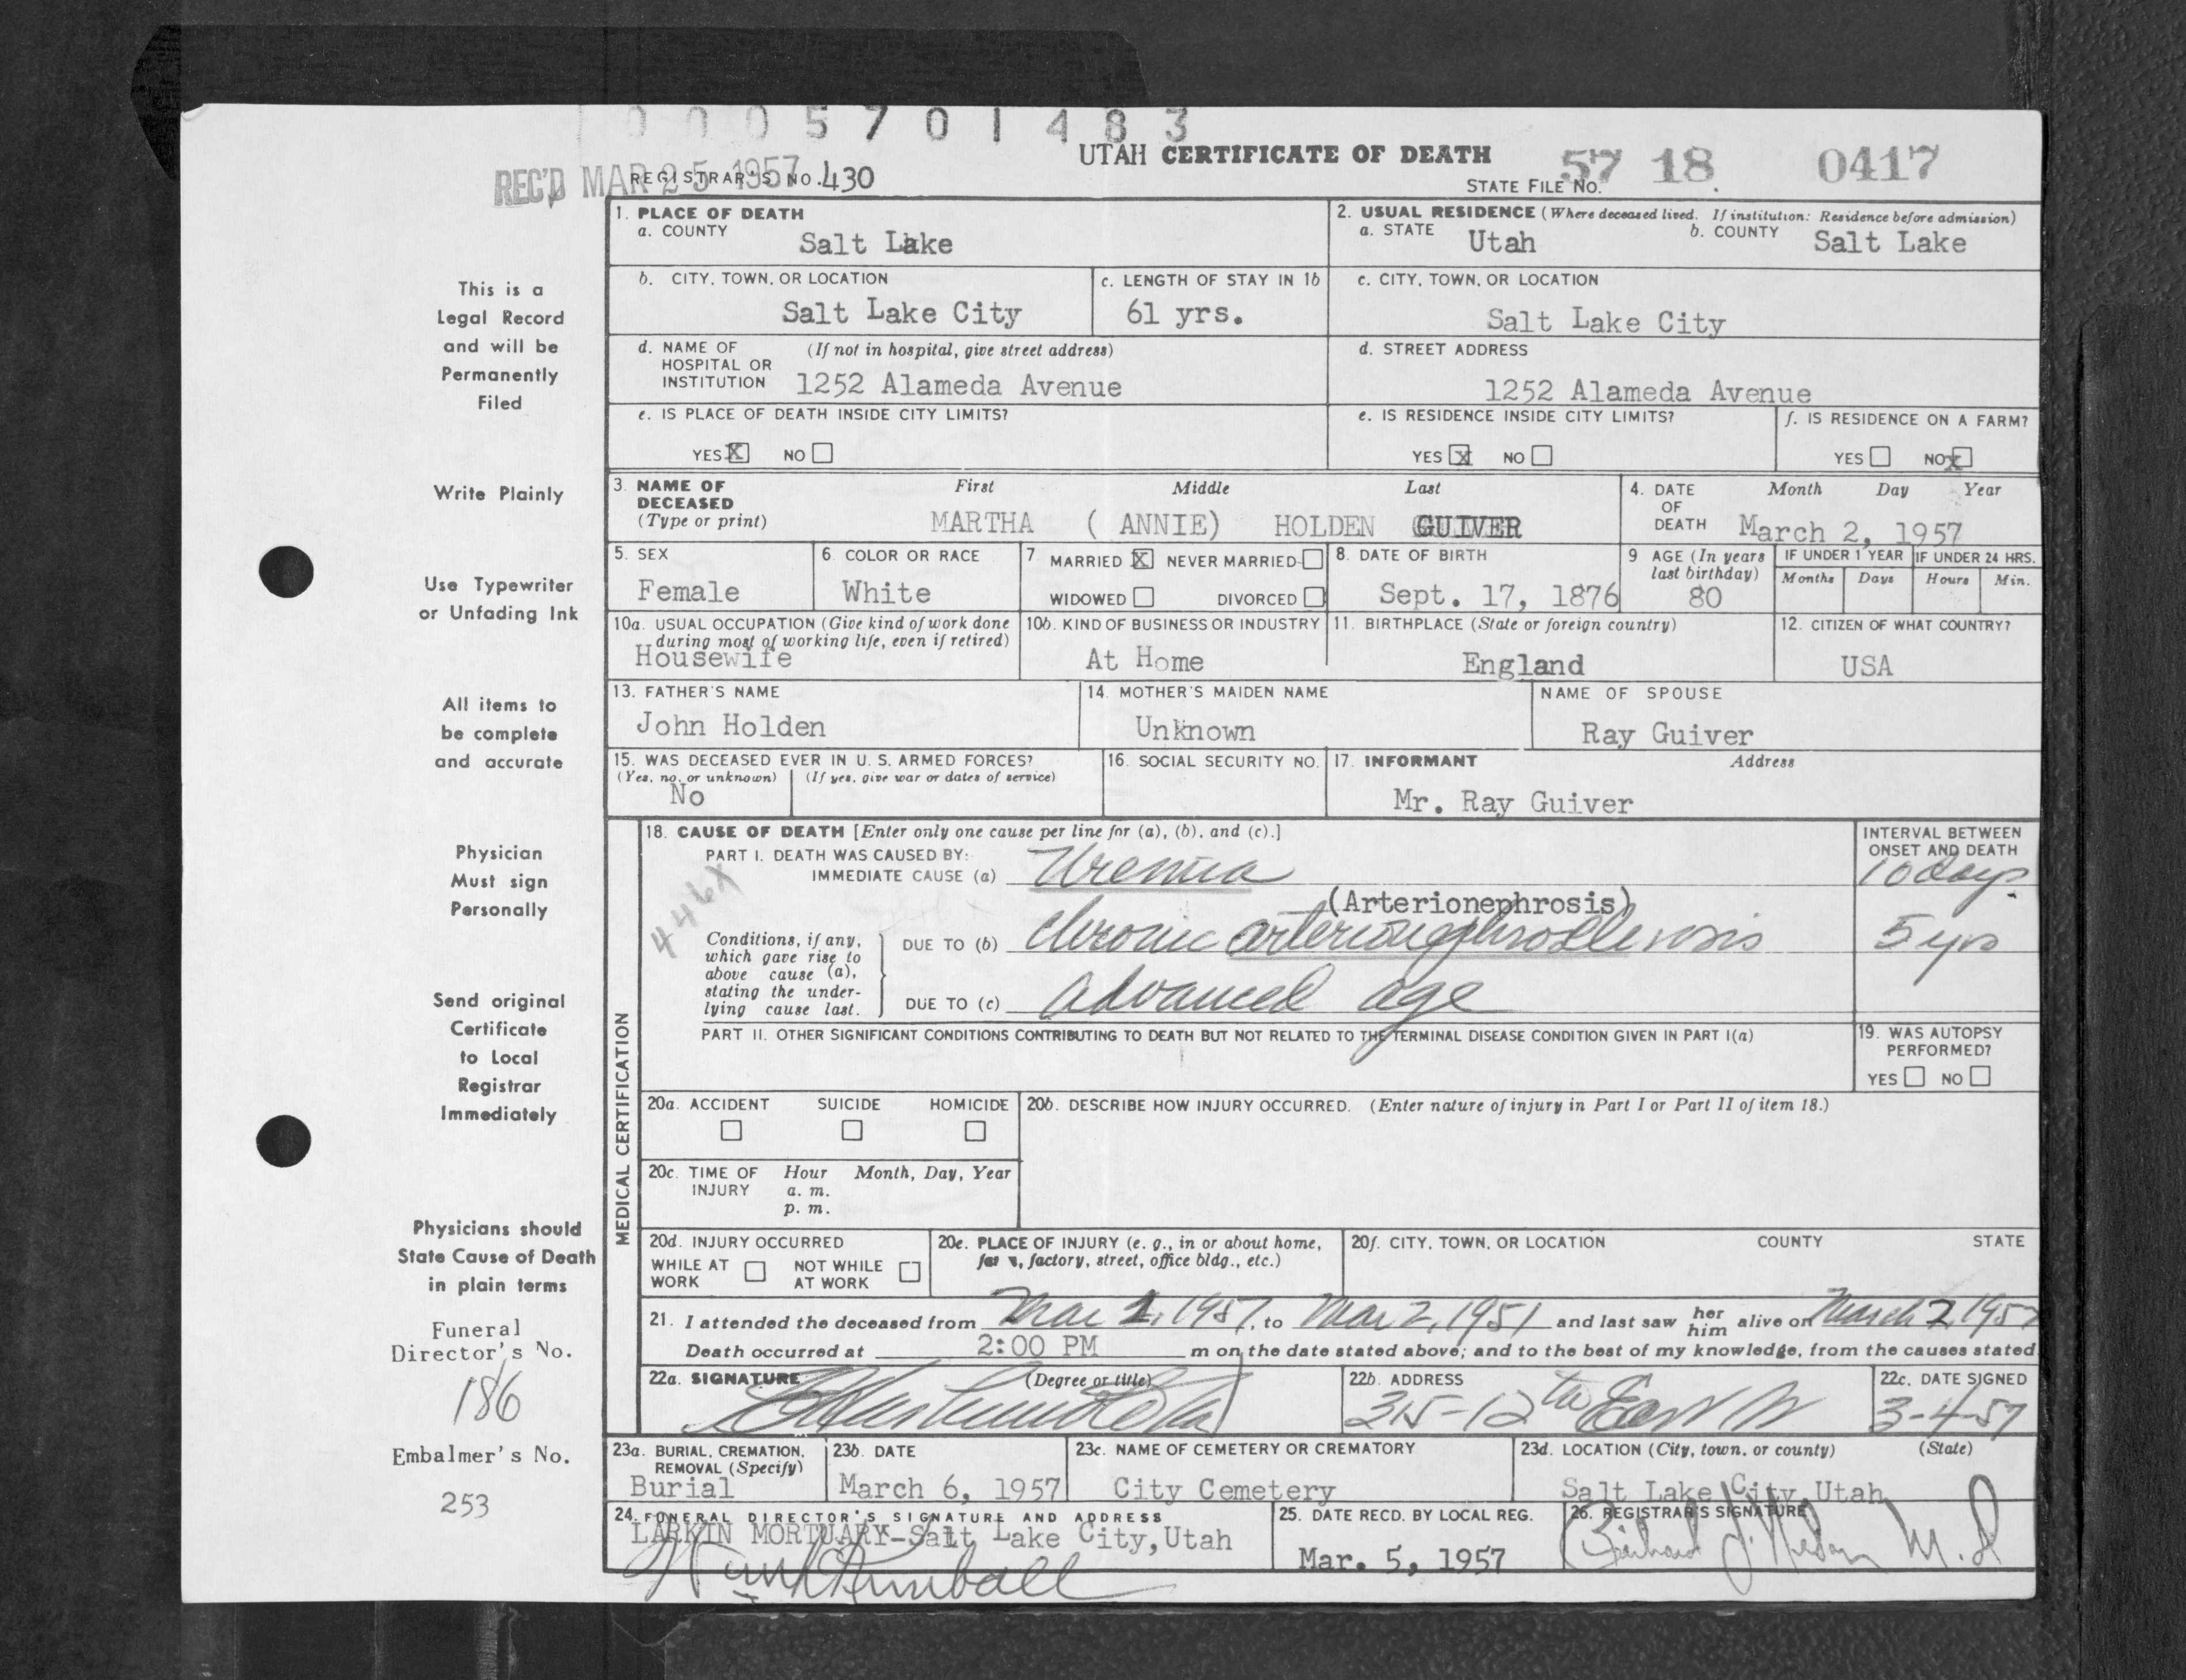 0005701483
UTAH CERTIFICATE OF DEATH
REC'D MAR 25 1957
REGISTRAR'S NO. 430
STATE FILE NO. 57 18 0417
1. PLACE OF DEATH
a. COUNTY
Salt Lake
2. USUAL RESIDENCE (Where deceased lived. If institution: Residence before admission)
a. STATE Utah b. COUNTY Salt Lake
b. CITY, TOWN, OR LOCATION
Salt Lake City
c. LENGTH OF STAY IN 1b
61 yrs.
c. CITY, TOWN, OR LOCATION
Salt Lake City
d. NAME OF (If not in hospital, give street address)
HOSPITAL OR
INSTITUTION 1252 Alameda Avenue
d. STREET ADDRESS
1252 Alameda Avenue
e. IS PLACE OF DEATH INSIDE CITY LIMITS?
YES X NO
e. IS RESIDENCE INSIDE CITY LIMITS?
YES X NO
f. IS RESIDENCE ON A FARM?
YES NO X
3. NAME OF First Middle Last
DECEASED
(Type or print) MARTHA ( ANNIE) HOLDEN GUIVER
4. DATE Month Day Year
OF
DEATH March 2, 1957
5. SEX
Female
6. COLOR OR RACE
White
7. MARRIED X NEVER MARRIED
WIDOWED DIVORCED
8. DATE OF BIRTH
Sept. 17, 1876
9 AGE (In years
last birthday)
80
IF UNDER 1 YEAR
Months Days
IF UNDER 24 HRS.
Hours Min.
10a. USUAL OCCUPATION (Give kind of work done
during most of working life, even if retired)
Housewife
10b. KIND OF BUSINESS OR INDUSTRY
At Home
11. BIRTHPLACE (State or foreign country)
England
12. CITIZEN OF WHAT COUNTRY?
USA
13. FATHER'S NAME
John Holden
14. MOTHER'S MAIDEN NAME
Unknown
NAME OF SPOUSE
Ray Guiver
15. WAS DECEASED EVER IN U. S. ARMED FORCES?
(Yes, no, or unknown) (If yes, give war or dates of service)
No
16. SOCIAL SECURITY NO.
17. INFORMANT Address
Mr. Ray Guiver
MEDICAL CERTIFICATION
18. CAUSE OF DEATH [Enter only one cause per line for (a), (b), and (c).]
INTERVAL BETWEEN
ONSET AND DEATH
PART I. DEATH WAS CAUSED BY:
IMMEDIATE CAUSE (a) Uremia 10 days
446X
(Arterionephrosis)
Conditions, if any,
which gave rise to
above cause (a),
stating the under-
lying cause last.
DUE TO (b) chronic arterionephrosclerosis 5 yrs
DUE TO (c) advanced age
PART II. OTHER SIGNIFICANT CONDITIONS CONTRIBUTING TO DEATH BUT NOT RELATED TO THE TERMINAL DISEASE CONDITION GIVEN IN PART I(a)
19. WAS AUTOPSY
PERFORMED?
YES NO
20a. ACCIDENT SUICIDE HOMICIDE
20b. DESCRIBE HOW INJURY OCCURRED. (Enter nature of injury in Part I or Part II of item 18.)
20c. TIME OF Hour Month, Day, Year
INJURY a. m.
p. m.
20d. INJURY OCCURRED
WHILE AT NOT WHILE
WORK AT WORK
20e. PLACE OF INJURY (e. g., in or about home,
farm, factory, street, office bldg., etc.)
20f. CITY, TOWN, OR LOCATION COUNTY STATE
21. I attended the deceased from Mar 1, 1957, to Mar 2, 1957 and last saw her him alive on March 2, 1957
Death occurred at 2:00 PM m on the date stated above; and to the best of my knowledge, from the causes stated
22a. SIGNATURE (Degree or title)
22b. ADDRESS
315-12th East
22c. DATE SIGNED
3-4-57
23a. BURIAL, CREMATION,
REMOVAL (Specify)
Burial
23b. DATE
March 6, 1957
23c. NAME OF CEMETERY OR CREMATORY
City Cemetery
23d. LOCATION (City, town, or county) (State)
Salt Lake City, Utah
24. FUNERAL DIRECTOR'S SIGNATURE AND ADDRESS
LARKIN MORTUARY-Salt Lake City, Utah
Kimball
25. DATE RECD. BY LOCAL REG.
Mar. 5, 1957
26. REGISTRAR'S SIGNATURE
M.D
This is a
Legal Record
and will be
Permanently
Filed
Write Plainly
Use Typewriter
or Unfading Ink
All items to
be complete
and accurate
Physician
Must sign
Personally
Send original
Certificate
to Local
Registrar
Immediately
Physicians should
State Cause of Death
in plain terms
Funeral
Director's No.
186
Embalmer's No.
253